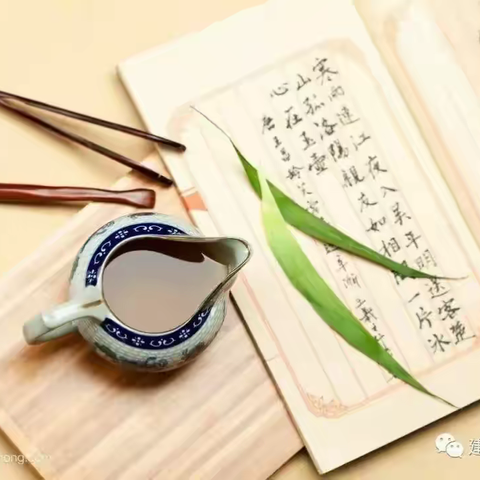 寒雨連江夜入吳平明送客楚
山孤洛陽親友如相問一片冰
心在玉壺
唐王昌龄芙
建